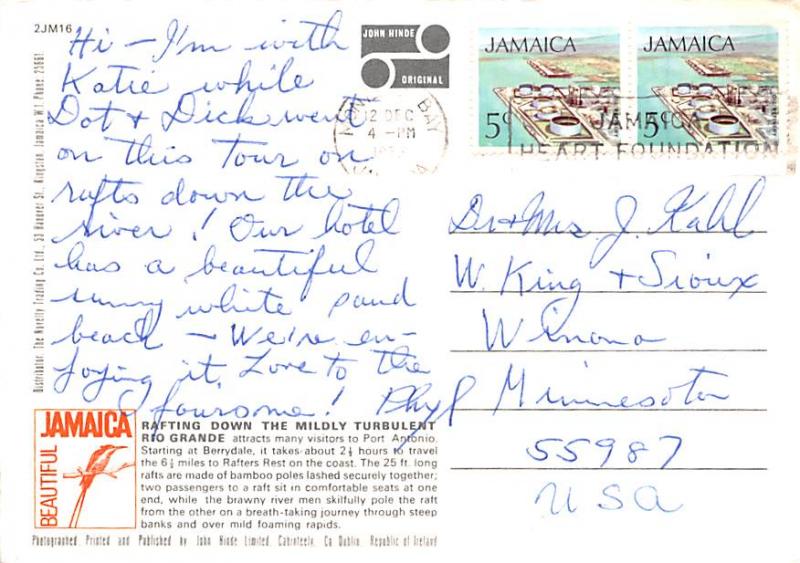 2JM16
Hi - I'm with
Katie while
Dot & Dick went
on this tour on
rafts down the
river! Our hotel
has a beautiful
sunny white sand
beach - We're en-
joying it. Love to the
foursome! Phyl
JOHN HINDE
ORIGINAL
JAMAICA
5c
JAMAICA
5c
BAY
12 DEC
4 - PM
JAMAICA
HEART FOUNDATION
Dr & Mrs J. Kahl
W. King & Sioux
Winona
Minnesota
55987
USA
Distributor: The Novelty Trading Co. Ltd., 53 Hanover St., Kingston, Jamaica W.I. Phone: 25661
BEAUTIFUL
JAMAICA
RAFTING DOWN THE MILDLY TURBULENT
RIO GRANDE attracts many visitors to Port Antonio.
Starting at Berrydale, it takes about 2½ hours to travel
the 6½ miles to Rafters Rest on the coast. The 25 ft. long
rafts are made of bamboo poles lashed securely together;
two passengers to a raft sit in comfortable seats at one
end, while the brawny river men skilfully pole the raft
from the other on a breath-taking journey through steep
banks and over mild foaming rapids.
Photographed, Printed and Published by John Hinde Limited, Cabinteely, Co. Dublin, Republic of Ireland